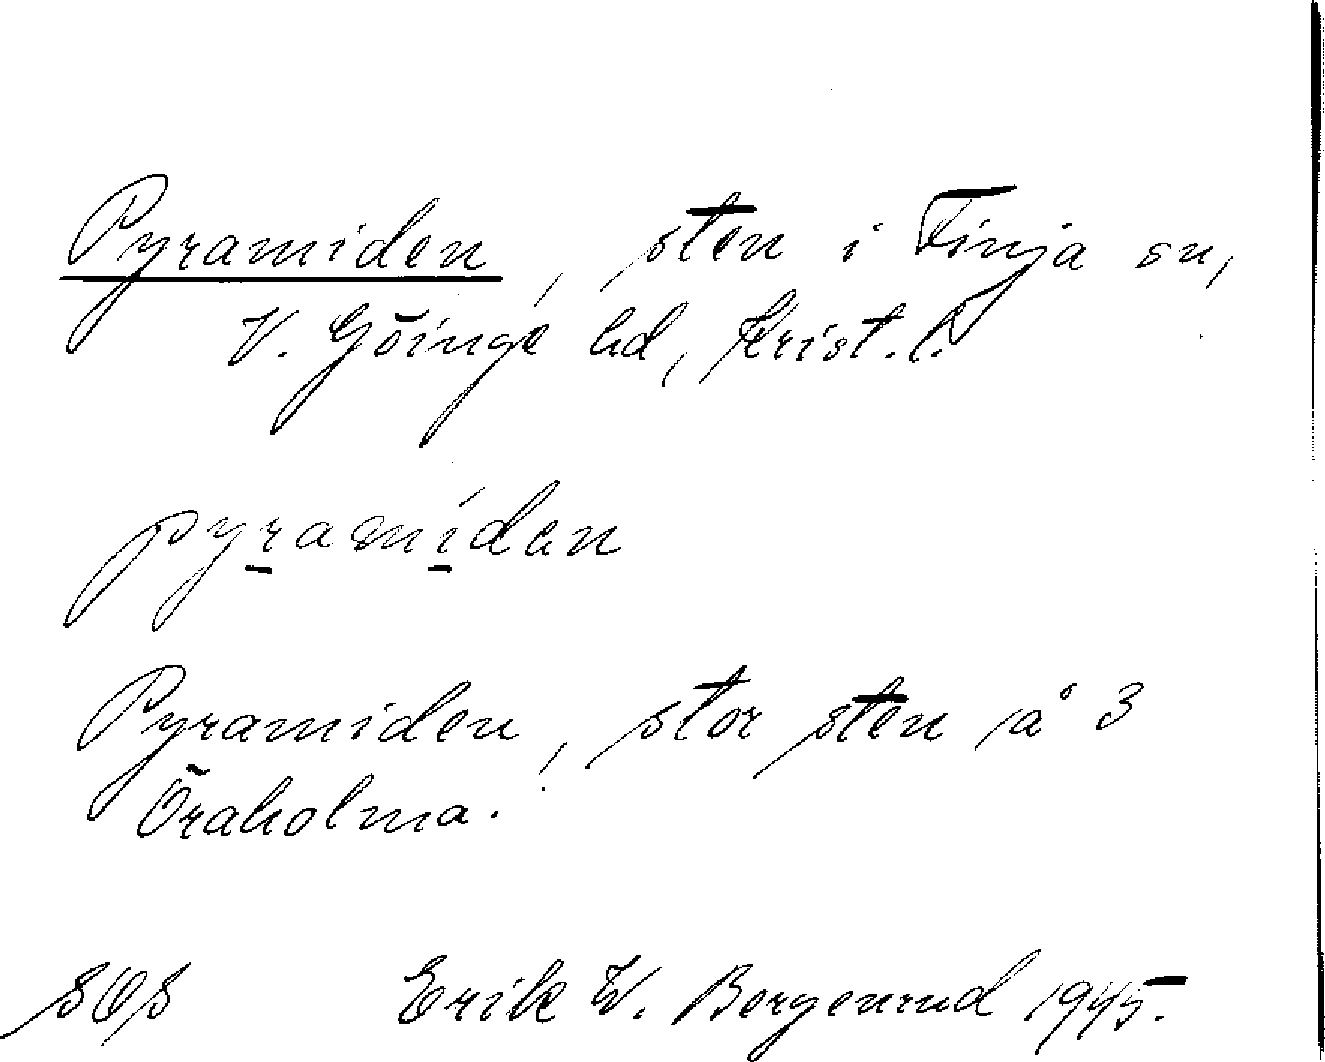 Pyramiden, sten i Finja sn,
V. Göinge hd, Krist. l.
pyramíden
Pyramiden, stor sten å 3
Öraholma.
SOS Erik W. Borgenrud 1945.